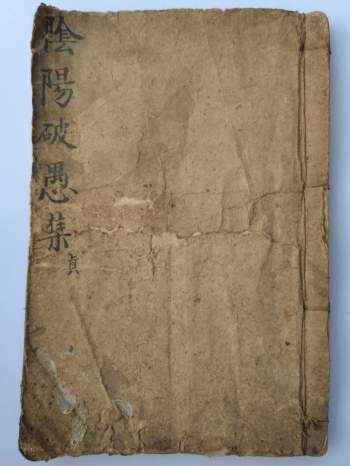 陰陽破愚集貞